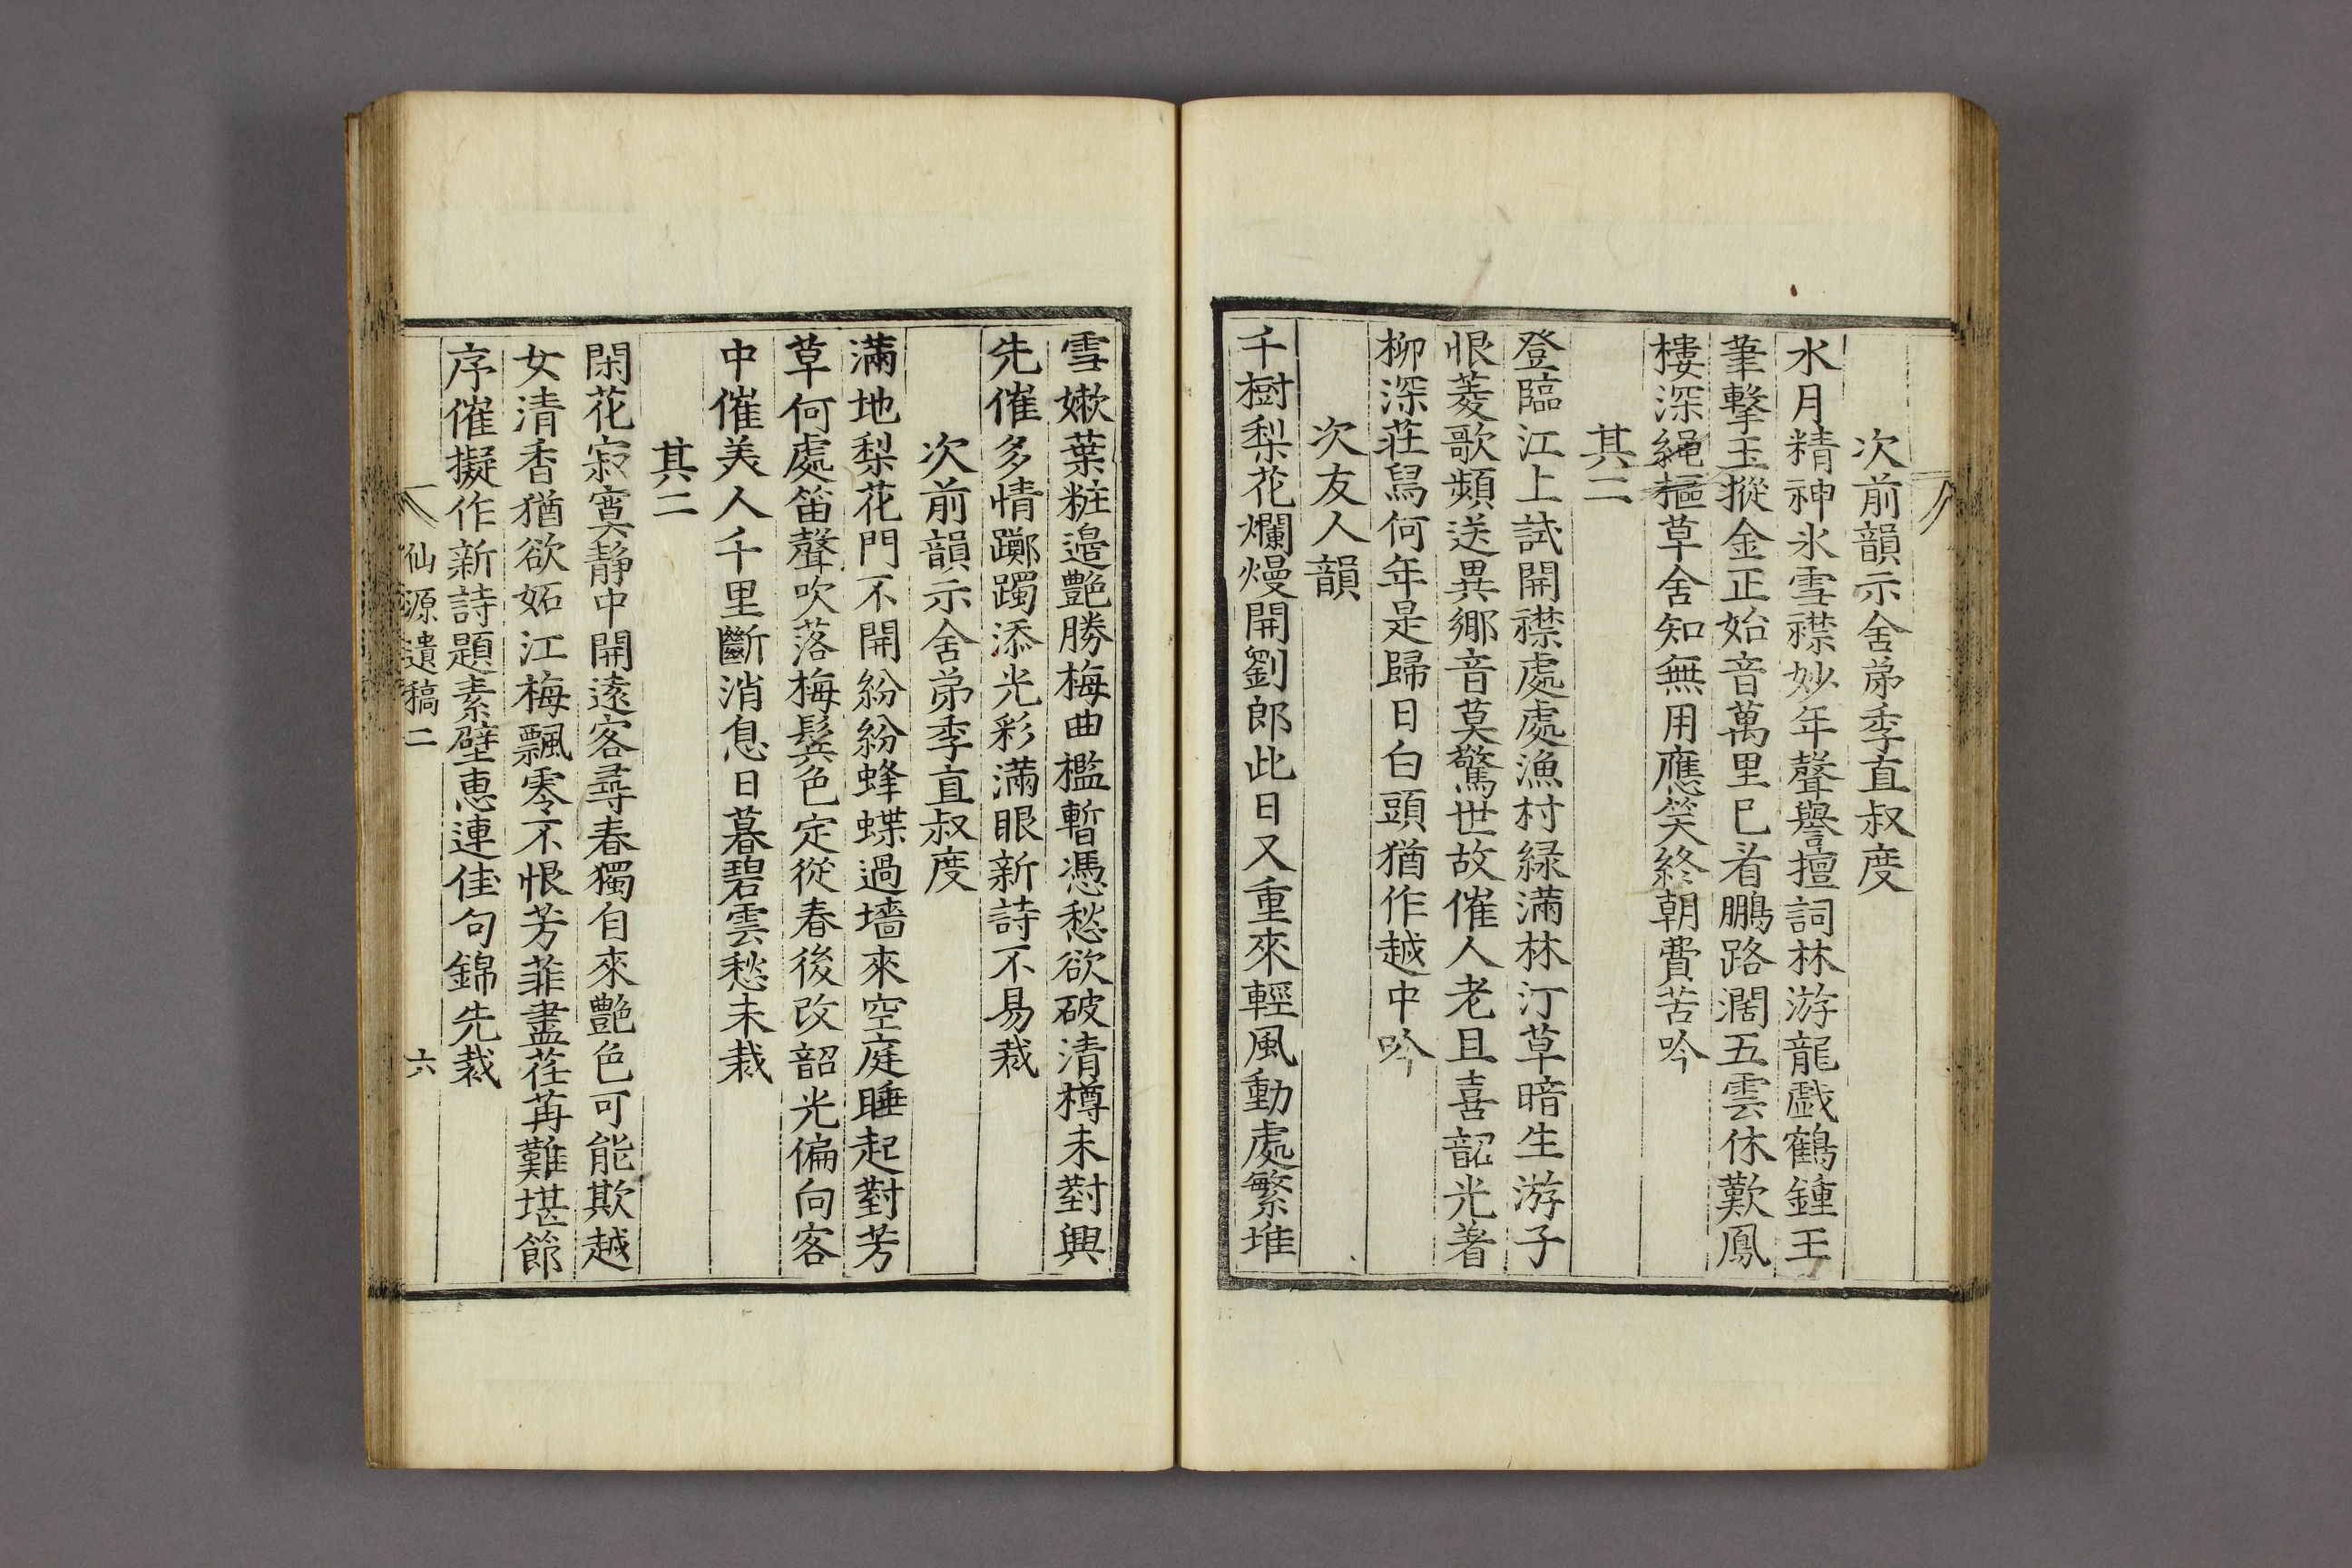 次前韻示舍弟季直叔度
水月精神氷雪襟妙年聲譽擅詞林游龍戱鶴鍾王
筆擊玉摐金正始音萬里已看鵬路濶五雲休歎鳳
樓深繩樞草舍知無用應笑終朝費苦吟
其二
登臨江上試開襟處處漁村緑滿林汀草暗生游子
恨菱歌頻送異鄉音莫驚世故催人老且喜韶光着
柳深莊舃何年是歸日白頭猶作越中吟
次友人韻
千樹梨花爛熳開劉郎此日又重來輕風動處繁堆
雪嫩葉粧邉艶勝梅曲檻暫憑愁欲破清樽未對興
先催多情躑躅添光彩滿眼新詩不易裁
次前韻示舍弟季直叔度
滿地梨花門不開紛紛蜂蝶過墻來空庭睡起對芳
草何處笛聲吹落梅鬂色定從春後改韶光偏向客
中催美人千里斷消息日暮碧雲愁未裁
其二
閑花寂寞静中開遠客尋春獨自來艶色可能欺越
女清香猶欲妬江梅飄零不恨芳菲盡荏苒難堪節
序催擬作新詩題素壁惠連佳句錦先裁
仙源遺稿二
六